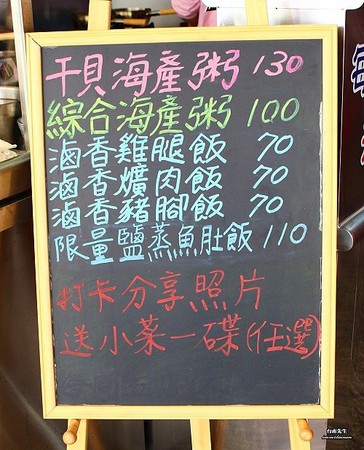 干貝海產粥 130
綜合海產粥 100
滷香雞腿飯 70
滷香爌肉飯 70
滷香豬腳飯 70
限量鹽蒸魚肚飯 110
打卡分享照片
送小菜一碟(任選)
台南先生